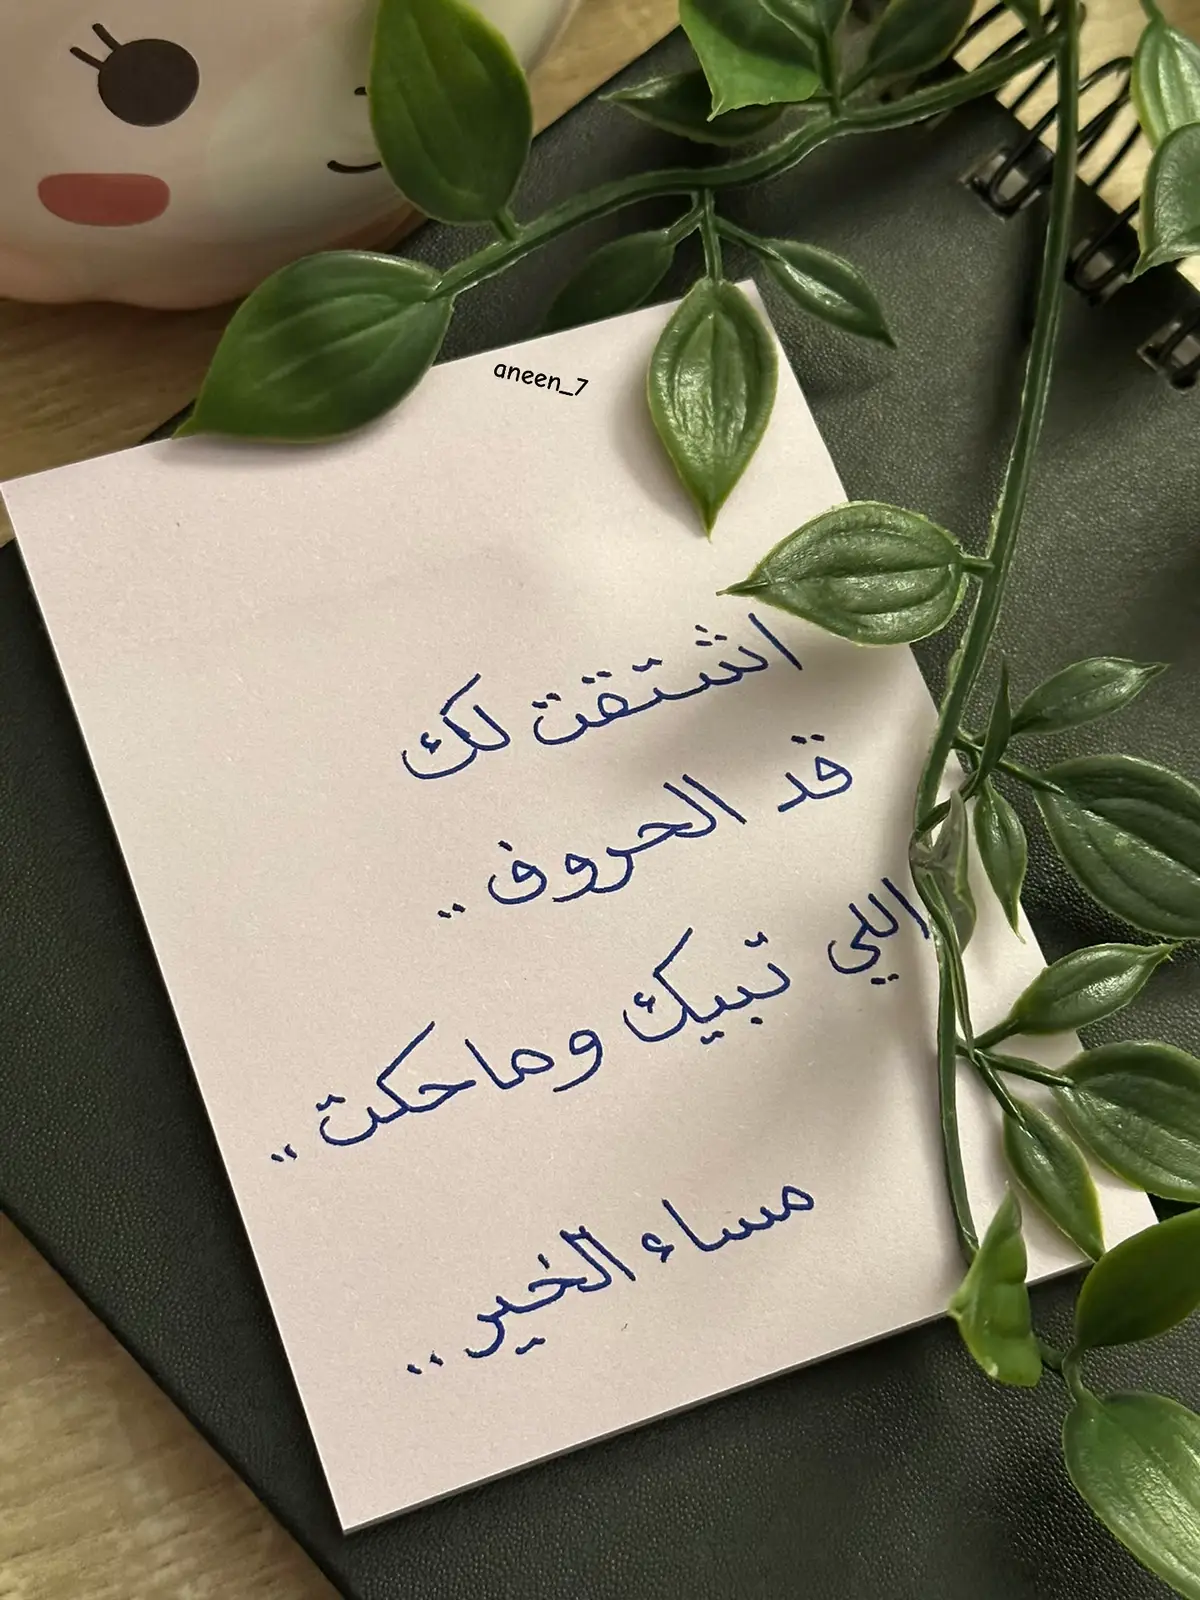 aneen_7
اشتقت لك
قد الحروف ..
اللي تبيك وما حكت ..
مساء الخير ..